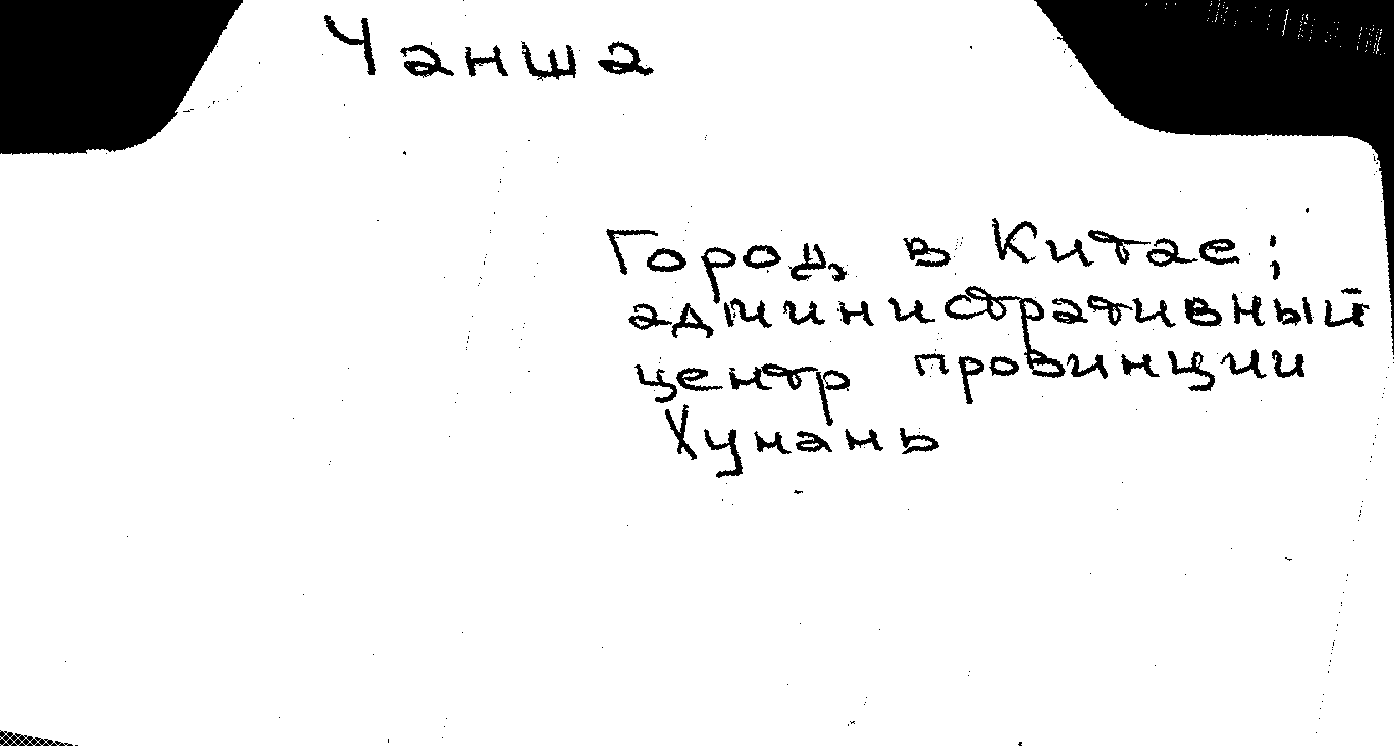 Чанша
Город в Китае;
административный
центр провинции
Хунань